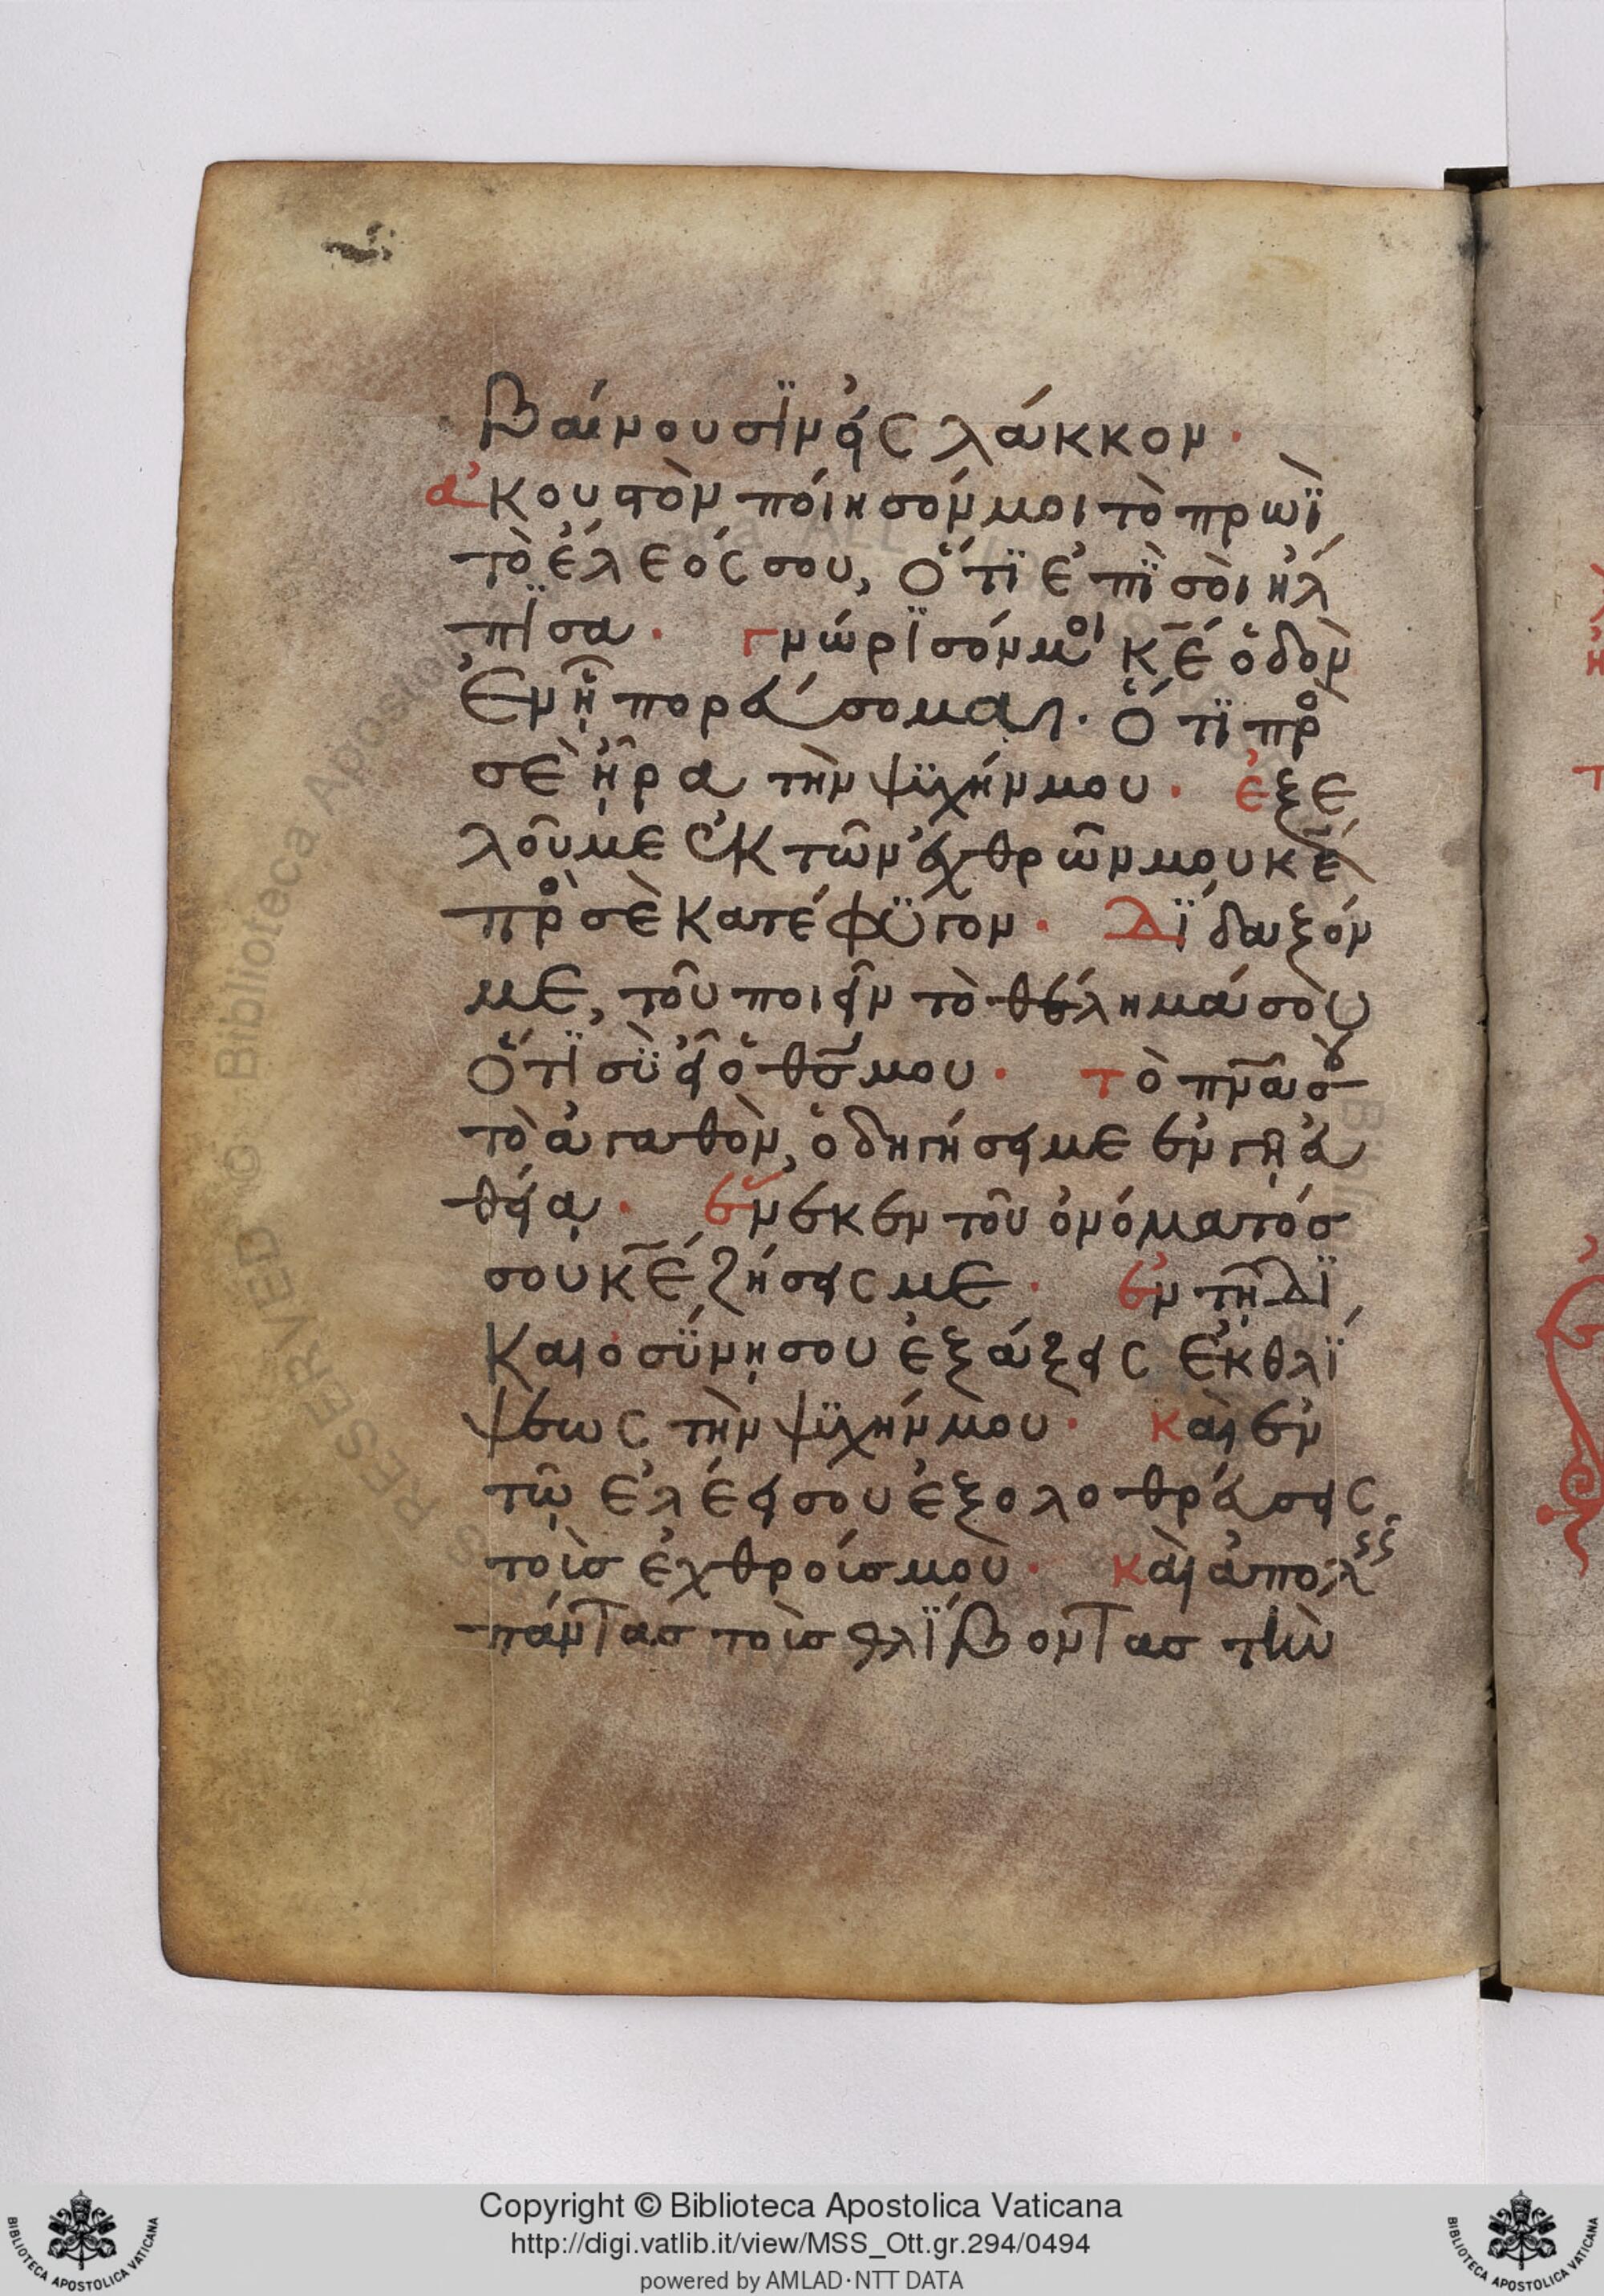 βαίνουσιν εἰς λάκκον·
ἀκουστὸν ποίησόν μοι τὸ πρωῒ
τὸ ἔλεός σου, ὅτϊ ἐπῒ σοὶ ἤλ
πϊσα· γνώρϊσόν μοι κ̅ε̅ ὁδὸν
ἐν ᾗ πορεύσομαι· ὅτϊ πρὸ
σὲ ἦρα τὴν ψϋχήν μου· ἐξε
λοῦ με ἐκ τῶν ἐχθρῶν μου κ̅ε̅
πρὸ σὲ κατέφϋγον· Δϊδαξόν
με, τοῦ ποιεῖν τὸ θέλημά σου
ὅτϊ σὺ εἶ ὁ θ̅σ̅ μου· τὸ π̅ν̅α̅ σου
τὸ ἀγαθὸν, ὁδηγήσει με ἐν γῇ εὐ
θείᾳ· ἕνεκεν τοῦ ὀνόματόσ
σου κ̅ε̅ ζήσεις με· ἐν τῇ Δϊ
καιοσύνῃ σου ἐξάξεις ἐκ θλΐ
ψεως τὴν ψϋχήν μου· καὶ ἐν
τῷ ἐλέει σου ἐξολοθρεύσεις
τοὺσ ἐχθρούσ μου· καὶ ἀπολ
πάντασ τοὺσ θλΐβοντασ τὴν
Copyright © Biblioteca Apostolica Vaticana
http://digi.vatlib.it/view/MSS_Ott.gr.294/0494
powered by AMLAD·NTT DATA
BIBLIOTECA APOSTOLICA VATICANA
BIBLIOTECA APOSTOLICA VATICANA